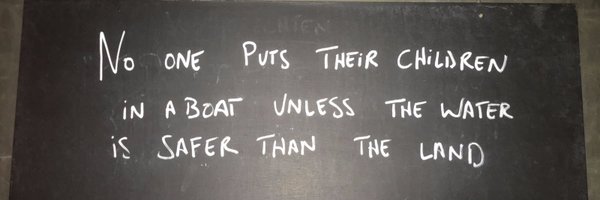 No ONE PUTS THEIR CHILDREN
iN A BOAT UNLESS THE WATER
iS SAFER THAN THE LAND